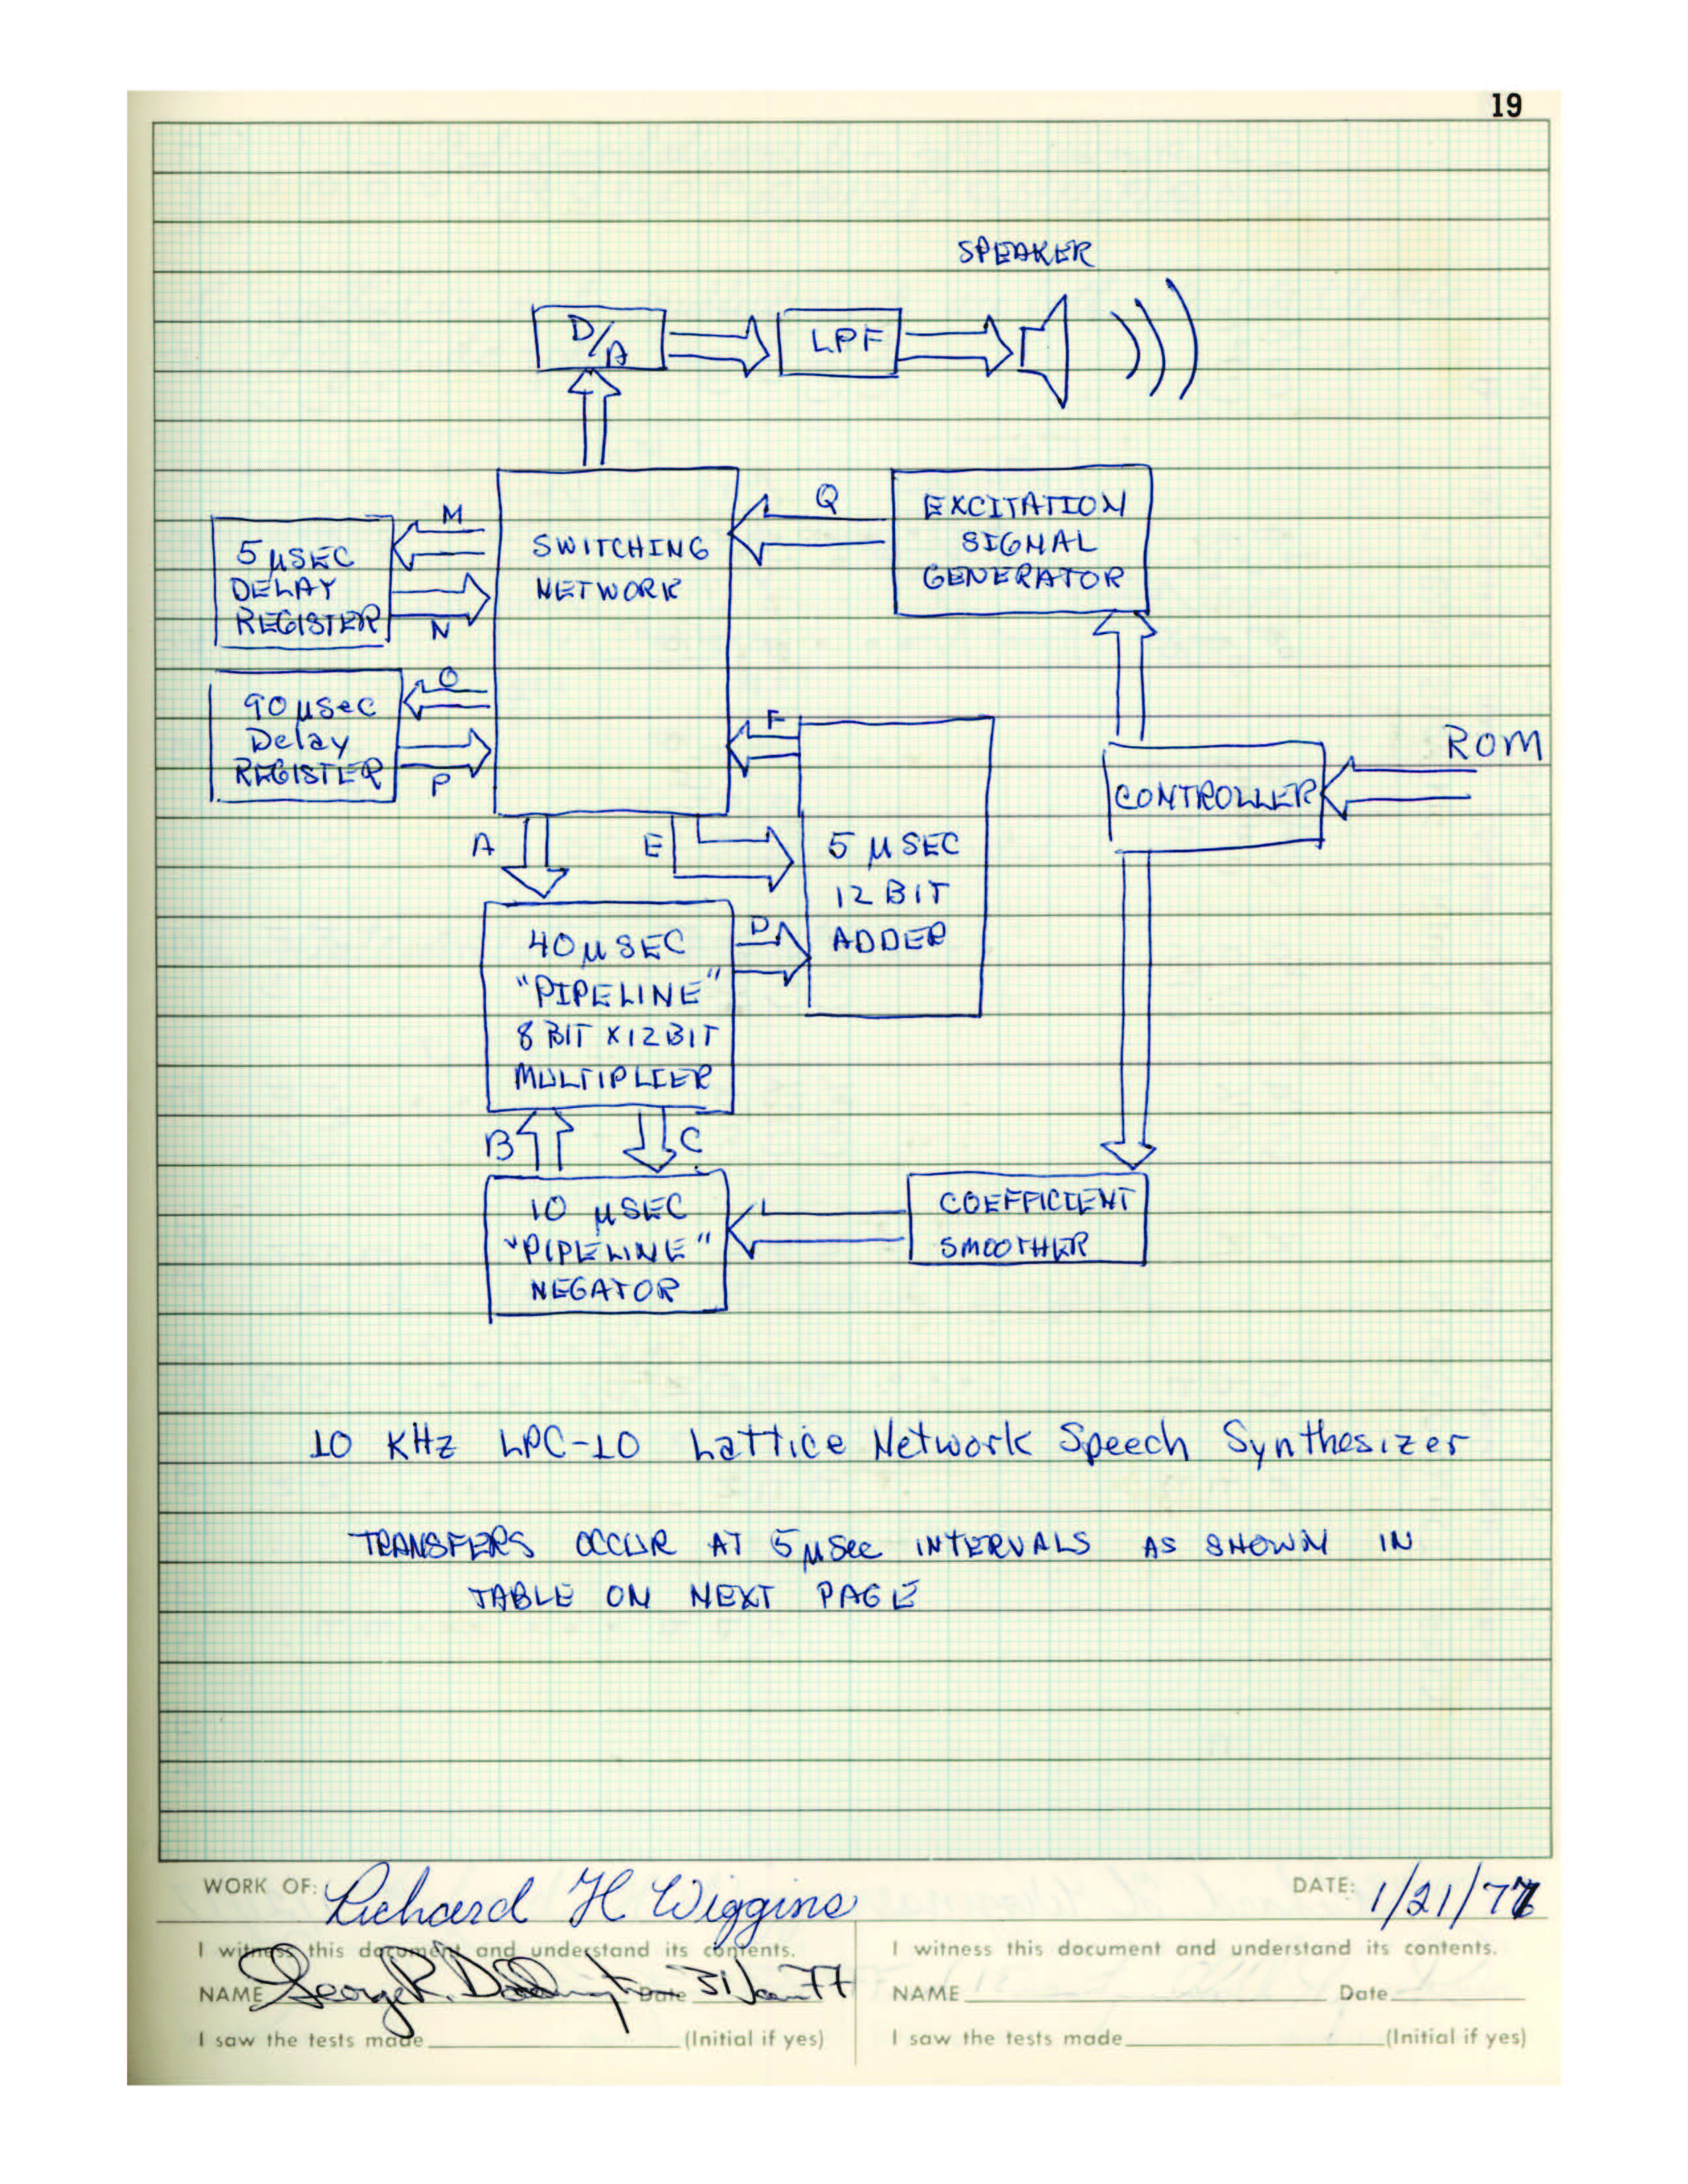 19
SPEAKER
D/A
LPF
M
5 μSEC
DELAY
REGISTER
N
SWITCHING
NETWORK
Q
EXCITATION
SIGNAL
GENERATOR
O
90 μSec
Delay
REGISTER
P
F
ROM
CONTROLLER
A
E
5 μSEC
12 BIT
ADDER
D
40 μSEC
"PIPELINE"
8 BIT X 12 BIT
MULTIPLIER
B
C
10 μSEC
"PIPELINE"
NEGATOR
COEFFICIENT
SMOOTHER
10 KHz LPC-10 Lattice Network Speech Synthesizer
TRANSFERS OCCUR AT 5 μSec INTERVALS AS SHOWN IN
TABLE ON NEXT PAGE
WORK OF: Richard H Wiggins DATE: 1/21/77
I witness this document and understand its contents.
NAME George R. Doddington Date 31 Jan 77
I saw the tests made (Initial if yes)
I witness this document and understand its contents.
NAME Date
I saw the tests made (Initial if yes)